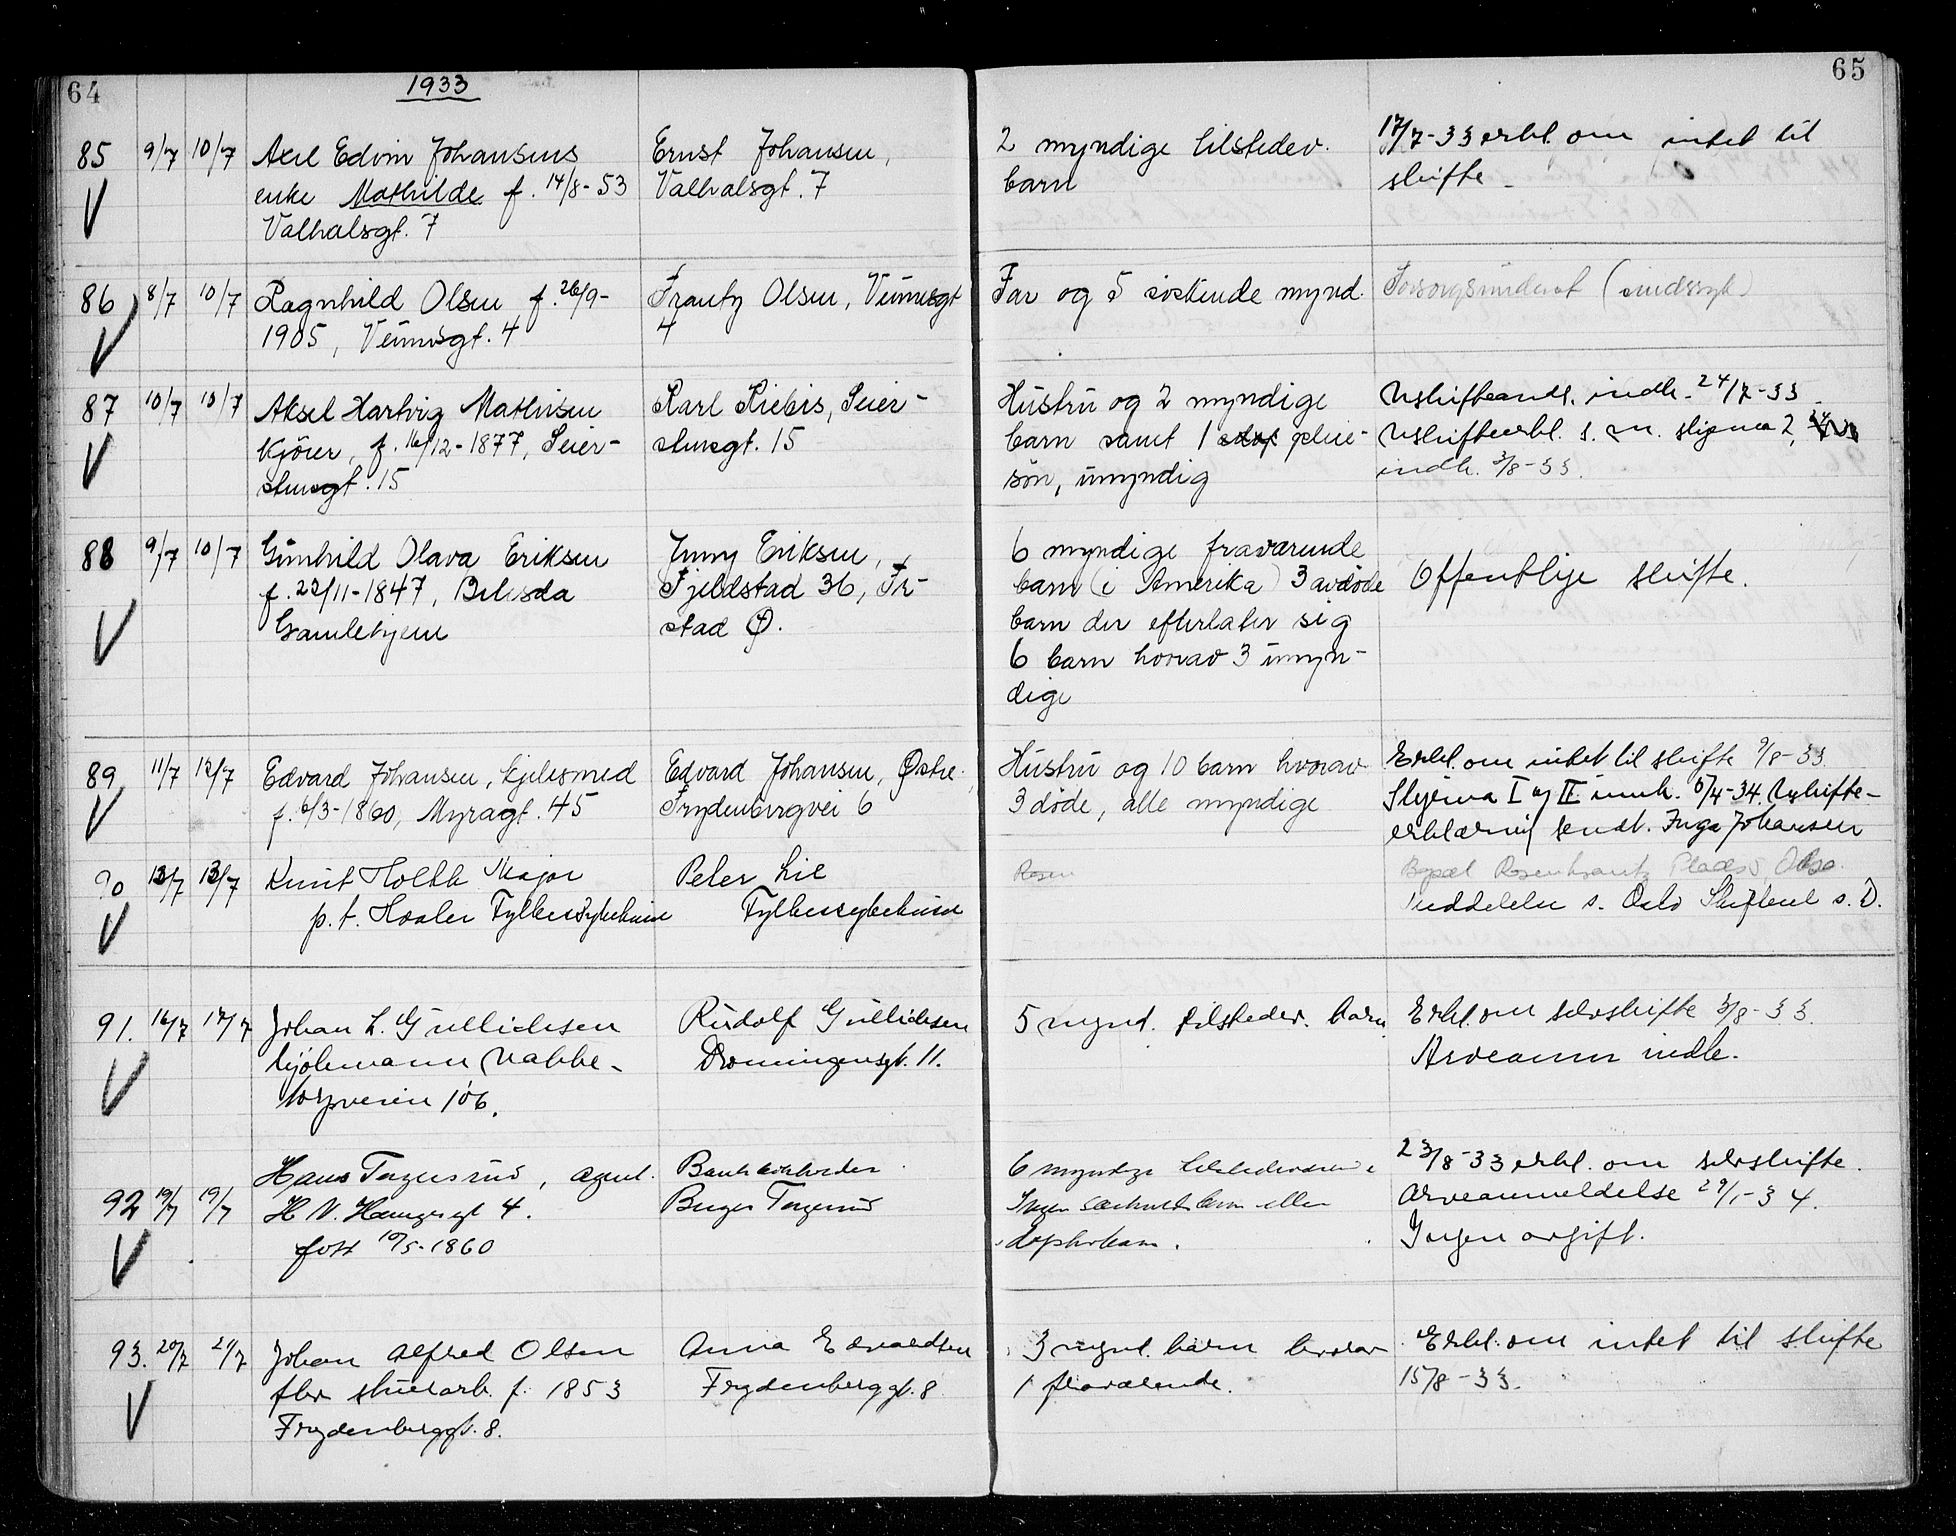 64
1933
65
85 9/7 10/7 Axel Edvin Johansens
enke Mathilde f. 14/8-53
Valhalsgt. 7
Ernst Johansen,
Valhalsgt. 7
2 myndige tilstedev.
barn
17/7-33 erkl. om intet til
skifte
86 8/7 10/7 Ragnhild Olsen f. 26/9-
1905, Veumsgt. 4
Frantz Olsen, Veumsgt
4
Far og 5 søskende mynd.
Forsorgsunderst (sindssyk)
87 10/7 10/7 Aksel Hartvig Mathisen
kjører, f. 16/12-1877, Seier-
stensgt. 15
Karl Riebis, Seier-
stensgt. 15
Hustru og 2 myndige
barn samt 1 pleie-
søn, umyndig
Uskifteand. indk. 24/7-33
Uskifteerkl. s. m. skjema 2,
indk. 3/8-33.
88 9/7 10/7 Gunhild Olava Eriksen
f. 22/11-1847, Betesda
Gamlebyen
Jenny Eriksen,
Fjeldstad 36, Fr-
stad Ø.
6 myndige fraværende
barn (i Amerika) 3 avdøde
barn der efterlater sig
6 barn hvorav 3 umyn-
dige
Offentlige skifte.
89 11/7 12/7 Edvard Johansen, kjelesmed
f. 6/3-1860, Myragt. 45
Edvard Johansen, Østre
Frydenbergvei 6
Hustru og 10 barn hvorav
3 døde, alle myndige
Erkl. om intet til skifte 9/8-33
Skjema I og II innk. 5/4-34. Uskifte-
erklæring sendt. Inga Johansen
90 13/7 13/7 Knut Holth Major
p.t. Hvaler Fylkessykehuse
Peter Lie
Fylkessykehuse
Rosen
Bopæl Rosenkrantz Plads 5 Oslo.
Meddelelse s. Oslo Skifteret s. D.
91. 16/7 17/7 Johan L. Gullichsen
kjøbmann Nabbe-
torpveien 106.
Rudolf Gullichsen
Dronningensgt. 11.
5 mynd. tilstedev. barn
Erkl. om selvskifte 3/8-33.
Arveanm indk.
92 19/7 19/7 Hans Torgersrud, agent.
H. N. Haugesgt 4.
født 10/5-1860
Bankbokholder
Birger Torgersrud
6 myndige tilstedeværende
Ingen særkuldsbarn eller
adoptivbarn.
23/8-33 erkl. om selvskifte.
Arveanmeldelse 29/1-34.
Ingen avgift.
93. 20/7 21/7 Johan Alfred Olsen
fhv stuerarb. f. 1853
Frydenberggt. 8.
Anna Edvardsen
Frydenberggt. 8
3 mynd. barn hvorav
1 fraværende.
Erkl. om intet til skifte
15/8-33.